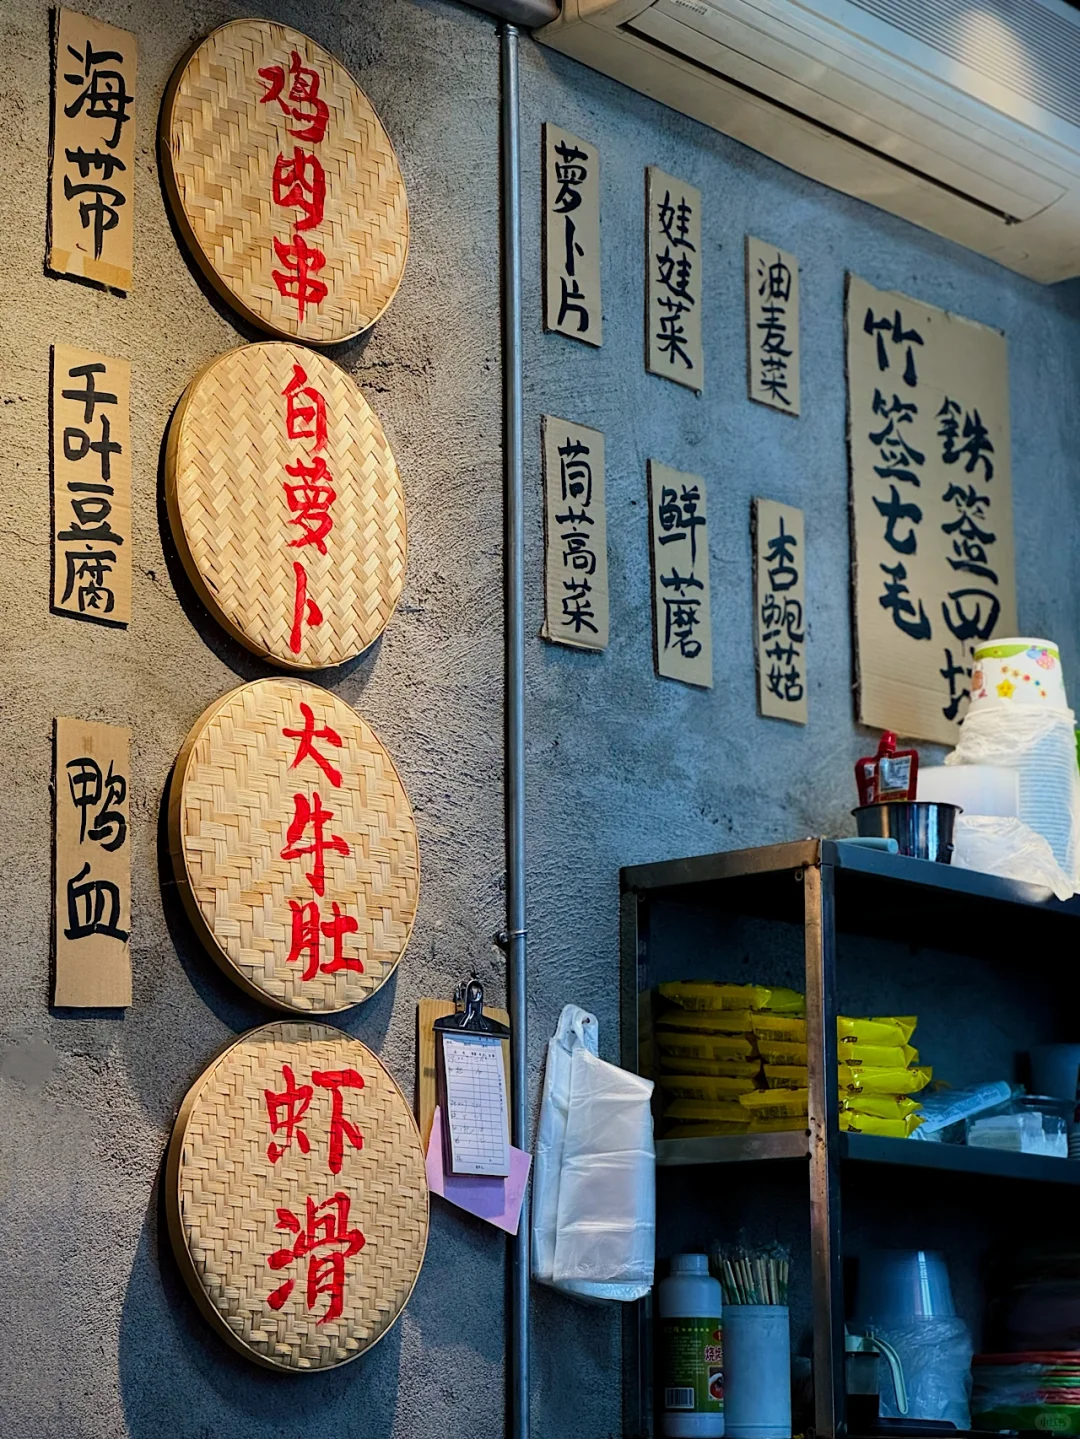 海带
千叶豆腐
鸭血
鸡肉串
白萝卜
大牛肚
虾滑
萝卜片
娃娃菜
油麦菜
茼蒿菜
鲜蘑
杏鲍菇
竹签七毛
鉄签四块